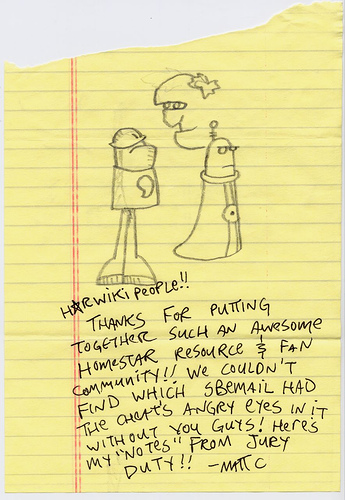 H★RWIKI PEOPLE!!
THANKS FOR PUTTING
TOGETHER SUCH AN AWESOME
HOMESTAR RESOURCE & FAN
COMMUNITY!! WE COULDN'T
FIND WHICH SBEMAIL HAD
THE CHEAT'S ANGRY EYES IN IT
WITHOUT YOU GUYS! HERE'S
MY "NOTES" FROM JURY
DUTY!! -MATT C